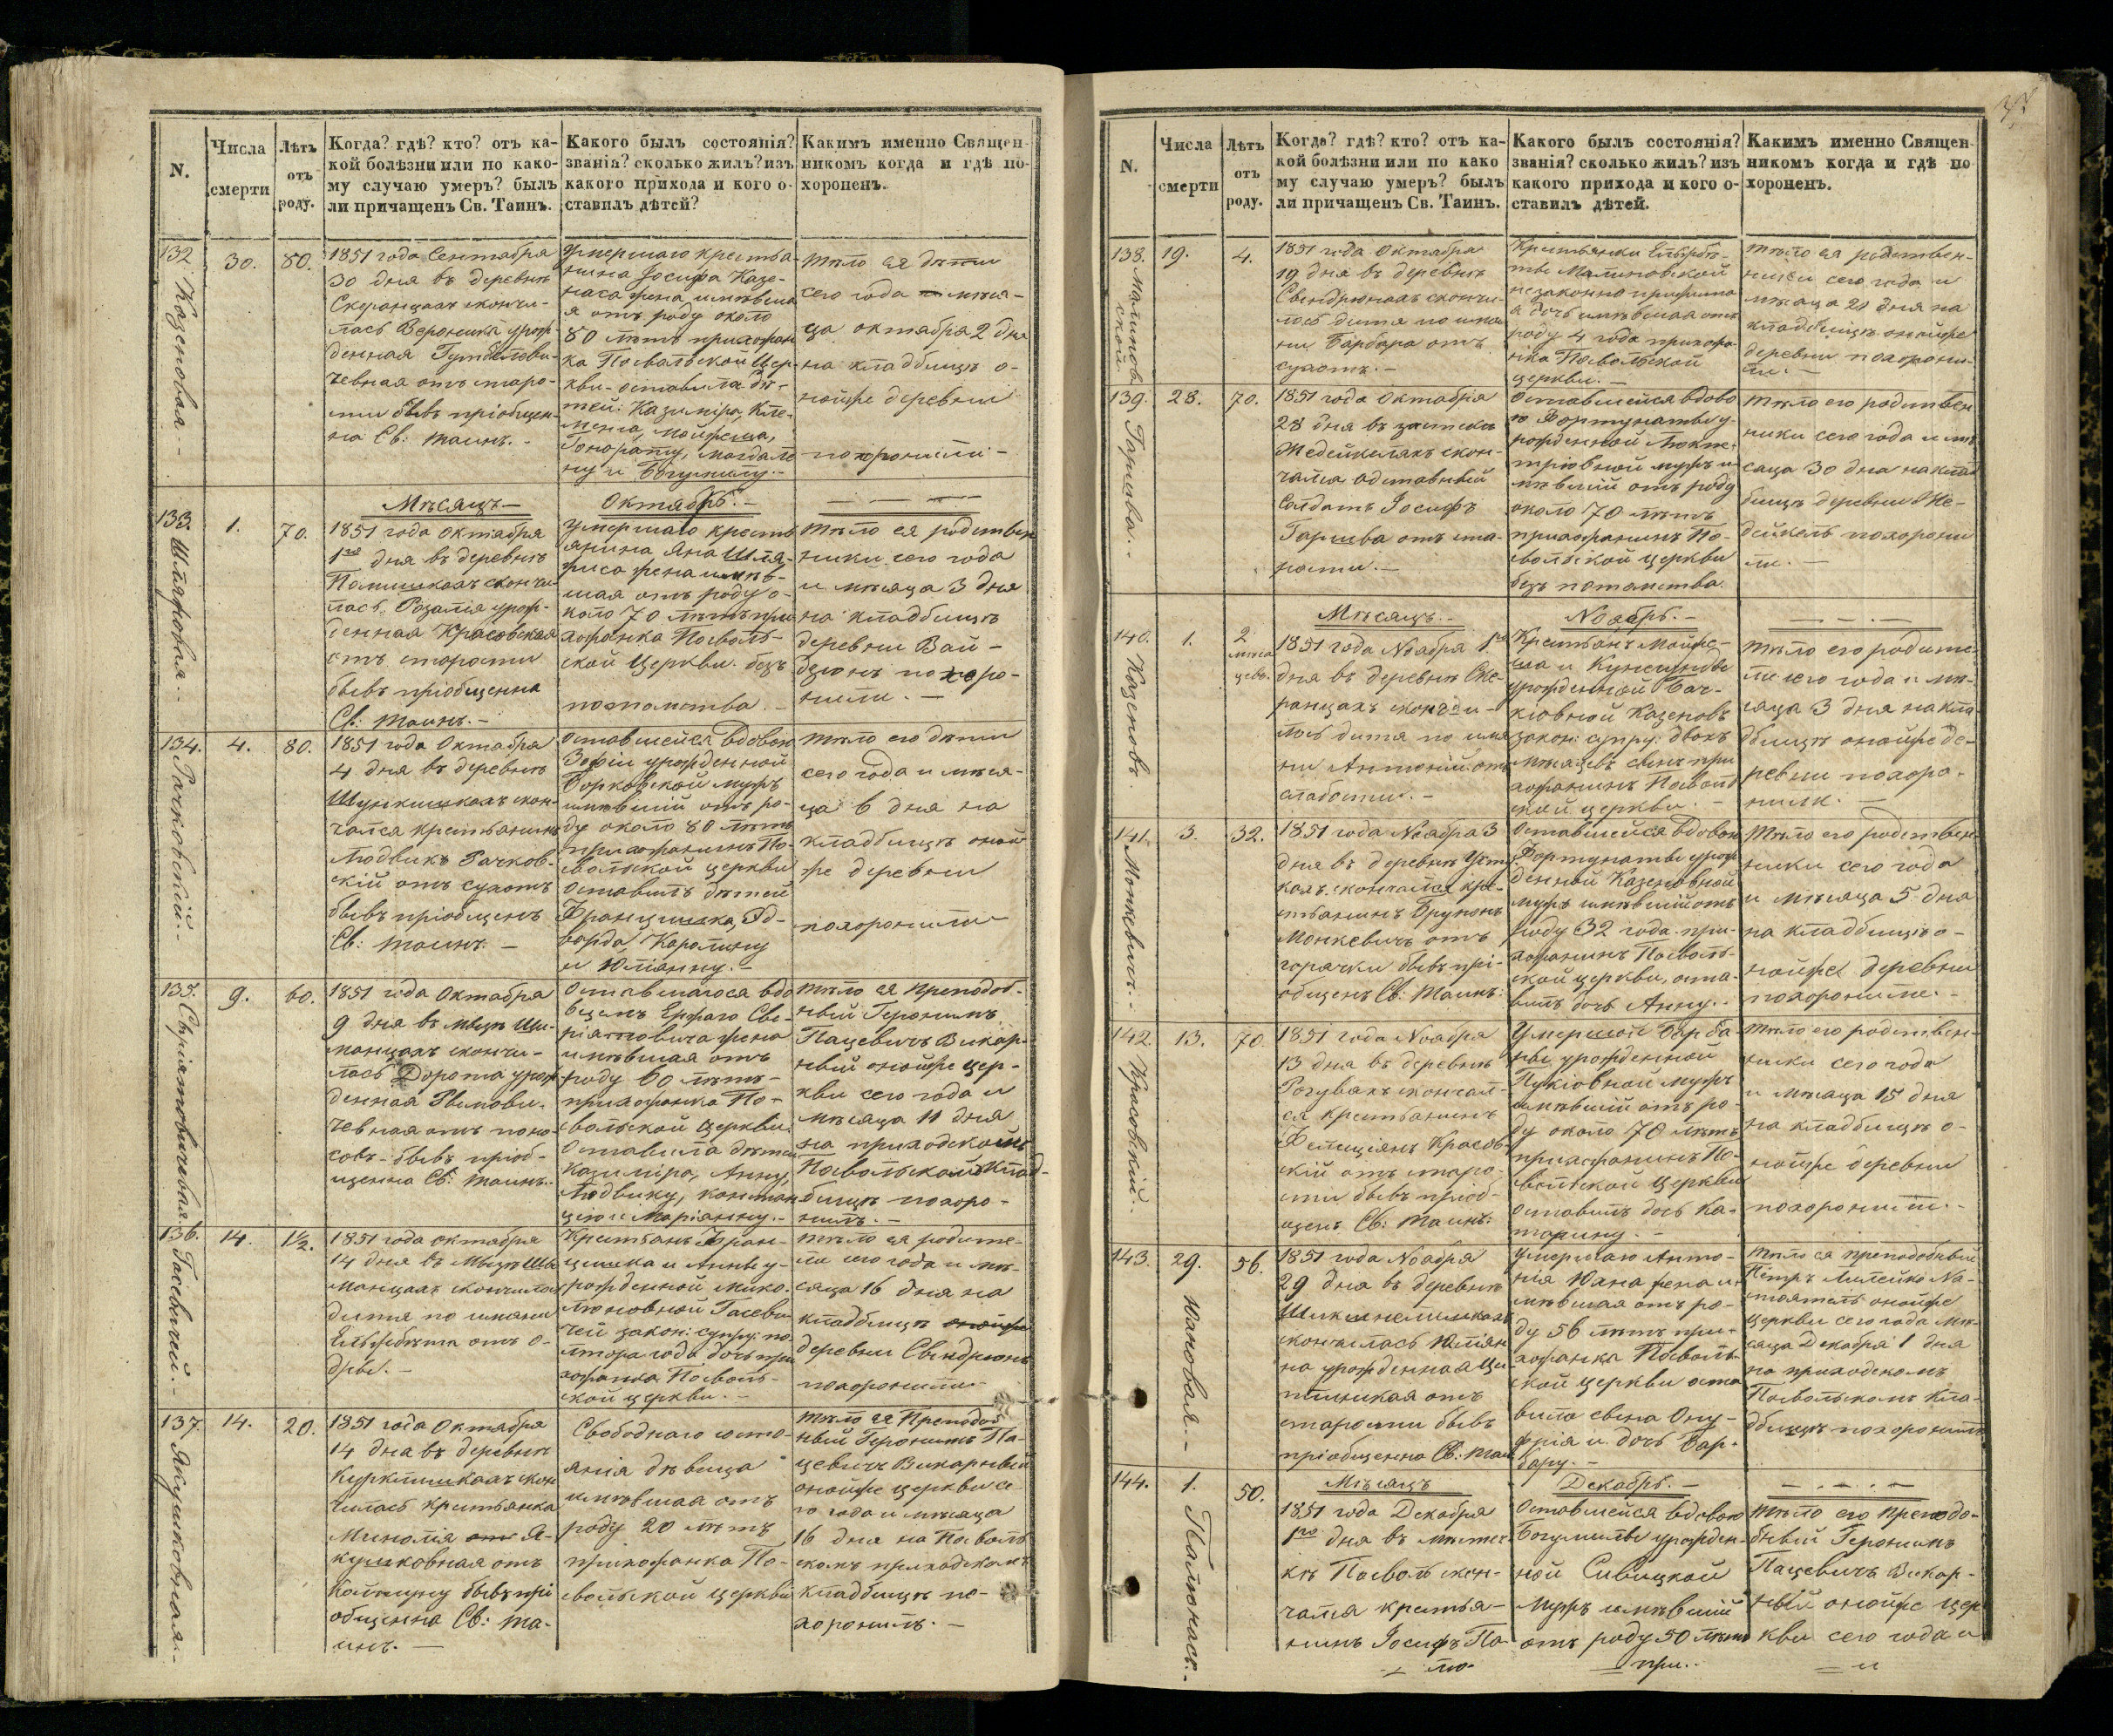 N.
Числа
смерти
Лѣтъ
отъ
роду.
Когда? гдѣ? кто? отъ ка-
кой болѣзни или по како-
му случаю умеръ? былъ
ли причащенъ Св. Таинъ.
Какого былъ состоянія?
званія? сколько жилъ? изъ
какого прихода и кого о-
ставилъ дѣтей?
Какимъ именно Священ-
никомъ когда и гдѣ по-
хороненъ.
132.
Казеновая.
30.
80.
1851 года Сентября
30 дня въ деревнѣ
Скеранцахъ скончи-
лась Вероника урож-
денная
чевная отъ старо-
сти бывъ пріобщен-
на Св: таинъ.
Умершаго крестья-
нина Іосифа Казе-
наса жена имѣвша-
я отъ роду около
80 лѣтъ прихожан-
ка Посвольской Цер-
кви. оставила дѣ-
тей: Казиміра, Кле-
менса, Мойжеша,
Гонорату, Магдале-
ну и Богумилу.-
тѣло ея дѣти
сего года мѣся-
ца октября 2 дня
на кладбищѣ о-
нойже деревни
похоронили-
Мѣсяцъ-
Октябрь.-
133.
Шляжовая.
1.
70.
1851 года Октября
1го дня въ деревнѣ
скончи-
лась Розалія урож-
денная Красовская
отъ старости
бывъ пріобщенна
Св: таинъ.-
Умершаго кресть-
янина Яна Шля-
жиса жена имѣв-
шая отъ роду о-
коло 70 лѣтъ при-
хожанка Посволь-
ской Церкви. безъ
потомства.-
тѣло ея родствен-
ники сего года
и мѣсяца 3 дня
на кладбищѣ
деревни Вай-
дзюнъ похоро-
нили.-
134.
Рачковскій.
4.
80.
1851 года Октября
4 дня въ деревнѣ
скон-
чался крестьянинъ
Людвикъ Рачков-
скій отъ сухотъ
бывъ пріобщенъ
Св: таинъ.-
Оставшейся вдовою
Зофіи урожденной
Борковской мужъ
имѣвшій отъ ро-
ду около 80 лѣтъ
прихожанинъ По-
свольской церкви
Оставилъ дѣтей
Францишка, Эд-
варда Каролину
и Юліянну.-
тѣло его дѣти
сего года и мѣся-
ца 6 дня на
кладбищѣ оной
же деревни
похоронили
135.
9.
60.
1851 года Октября
9 дня въ мѣст: Ши-
манцахъ скончи-
лась Дорота урож-
денная
чевная отъ поно-
совъ. бывъ пріоб-
щенна Св: таинъ.
Оставшагося вдо-
вцемъ
жена
имѣвшая отъ
роду 60 лѣтъ-
прихожанка По-
свольской Церкви.
Оставила дѣтей
Казиміра, Анну,
Людвику, констан-
цію и Маріянну.-
тѣло ея Преподоб-
ный Геронимъ
Пацевичъ Викар-
ный онойже цер-
кви сего года и
мѣсяца 11 дня
на приходскомъ
Посвольскомъ Клад-
бищѣ похоро-
нилъ.-
136.
14.
1½.
1851 года октября
14 дня въ Мѣст: Ши-
манцахъ скончилось
дитя по имени
Ельжбѣта отъ о-
дры.-
Крестьянъ Фран-
цишка и Анны у-
рожденной Мико-
люновной Гасеви-
чей закон: супру: по-
лтора года дочь при-
хожанка Посволь-
ской церкви.-
тѣло ея родите-
ли сего года и мѣ-
сяца 16 дня на
кладбищѣ
деревни Свендрюнъ
похоронили-
137.
Якушковная.
14.
20.
1851 года Октября
14 дня въ деревнѣ
скон-
чилась крестьянка
Я-
кушковная отъ
бывъ прі-
общенна Св: та-
инъ.-
Свободнаго состо-
янія дѣвица
имѣвшая отъ
роду 20 лѣтъ
прихожанка По-
свольской церкви
тѣло ея Преподоб-
ный Геронимъ Па-
цевичъ Викарный
онойже церкви се-
го года и мѣсяца
16 дня на Посволь-
скомъ приходскомъ
Кладбищѣ по-
хоронилъ.-
N.
Числа
смерти
Лѣтъ
отъ
роду.
Когда? гдѣ? кто? отъ ка-
кой болѣзни или по како
му случаю умеръ? былъ
ли причащенъ Св. Таинъ.
Какого былъ состоянія?
званія? сколько жилъ? изъ
какого прихода и кого о-
ставилъ дѣтей.
Какимъ именно Священ-
никомъ когда и гдѣ по
хороненъ.
138.
Малинов-
ской
19.
4.
1851 года Октября
19 дня въ деревнѣ
Свендрюнахъ скончи-
лось дитя по име-
ни Барбара отъ
сухотъ.-
Крестьянки Ельжбѣ-
ты Малиновской
незаконно
дочь имѣвшая отъ
роду 4 года прихожа-
нка Посвольской
церкви.-
тѣло ея родствен-
ники сего года и
мѣсяца 20 дня на
кладбищѣ онойже
деревни похорони-
ли.-
139.
Гаршва.
28.
70.
1851 года Октября
28 дня въ застѣнкѣ
скон-
чался отставный
Солдатъ Іосифъ
Гаршва отъ ста-
рости.-
Оставшейся вдово
ю Фортунаты у-
рожденной
мужъ и-
мѣвшій отъ роду
около 70 лѣтъ
прихожанинъ По-
свольской церкви
безъ потомства.
тѣло его родствен
ники сего года и мѣ-
сяца 30 дня на клад-
бищѣ деревни Же-
дейкель похорони
ли.-
Мѣсяцъ.-
Ноябрь.-
140.
Казеновъ
1.
2
мѣся
цевъ.
1851 года Ноября 1го
дня въ деревнѣ Ске-
ранцахъ скончи-
лось дитя по име-
ни Антоній отъ
слабости.-
Крестьянъ Мойже-
ша и Кунегунды
урожденной Бач-
кіовной Казеновъ
закон: супру: двохъ
мѣсяцевъ сынъ при-
хожанинъ Посволь-
ской церкви.-
тѣло его родите-
ли сего года и мѣ-
сяца 3 дня на кла-
дбищѣ онойже де-
ревни похоро-
нили.-
141.
Монкевичъ.
3.
32.
1851 года Ноября 3
дня въ деревнѣ
скончался кре-
стьянинъ Брунонъ
Монкевичъ отъ
горячки бывъ прі-
общенъ Св: таинъ.
Оставшейся вдовою
Фортунаты урож-
денной Казеновной
мужъ имѣвшій отъ
роду 32 года при-
хожанинъ Посволь-
ской церкви, оста-
вилъ дочь Анну.-
тѣло его родствен-
ники сего года
и мѣсяца 5 дня
на кладбищѣ о-
нойже деревни
похоронили.-
142.
Красовскій.
13.
70.
1851 года Ноября
13 дня въ деревнѣ
Рогувахъ скончал-
ся крестьянинъ
Фелиціянъ Красов-
скій отъ старо-
сти бывъ пріоб-
щенъ Св: таинъ:
Умершой Барба-
ры урожденной
мужъ
имѣвшій отъ ро-
ду около 70 лѣтъ
прихожанинъ По-
свольской Церкви
Оставилъ дочь Ка-
тарину.-
тѣло его родствен-
ники сего года
и мѣсяца 15 дня
на кладбищѣ о-
нойже деревни
похоронили.-
143.
Юановая.-
29.
56.
1851 года Ноября
29 дня въ деревнѣ
скончилась Юліян-
на урожденная
отъ
старости бывъ
пріобщенна Св: таи
Умершаго Анто-
нія Юана жена и-
мѣвшая отъ ро-
ду 56 лѣтъ при-
хожанка Посволь-
ской церкви оста
вила сына Ону-
фрія и дочь Бар-
бару.-
тѣло ея преподобный
Петръ На-
стоятель онойже
церкви сего года мѣ-
сяца Декабря 1 дня
на приходскомъ
Посвольскомъ Кла-
дбищѣ похоронилъ
144.
Палюнасъ.-
1.
50.
Мѣсяцъ
Декабрь.-
1851 года Декабря
1го дня въ мѣстеч-
кѣ Посволь скон-
чался крестья-
нинъ Іосифъ Па-
лю-
Оставшейся вдовою
Богумилы урожден-
ной Сивицкой
мужъ имѣвшій
отъ роду 50 лѣтъ
при.-
тѣло его преподо-
бный Геронимъ
Пацевичъ Викар-
ный онойже цер
кви сего года и
и